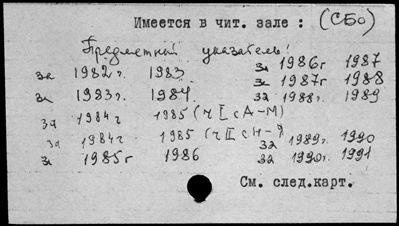 Имеется в чит. зале : (СБО)
Предметный указатель!
за 1982 г. 1983
за 1983 г. 1984
за 1984 г 1985 (ч I с А-М)
за 1984 г 1985 (ч II с Н-Я)
за 1985 г 1986
за 1986 г 1987
за 1987 г 1988
за 1988 г. 1989
за 1989 г. 1990
за 1990 г. 1991
См. след.карт.